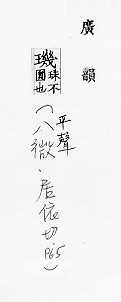 廣韻
璣珠不圓也
平聲
(八微.居依切.P65)